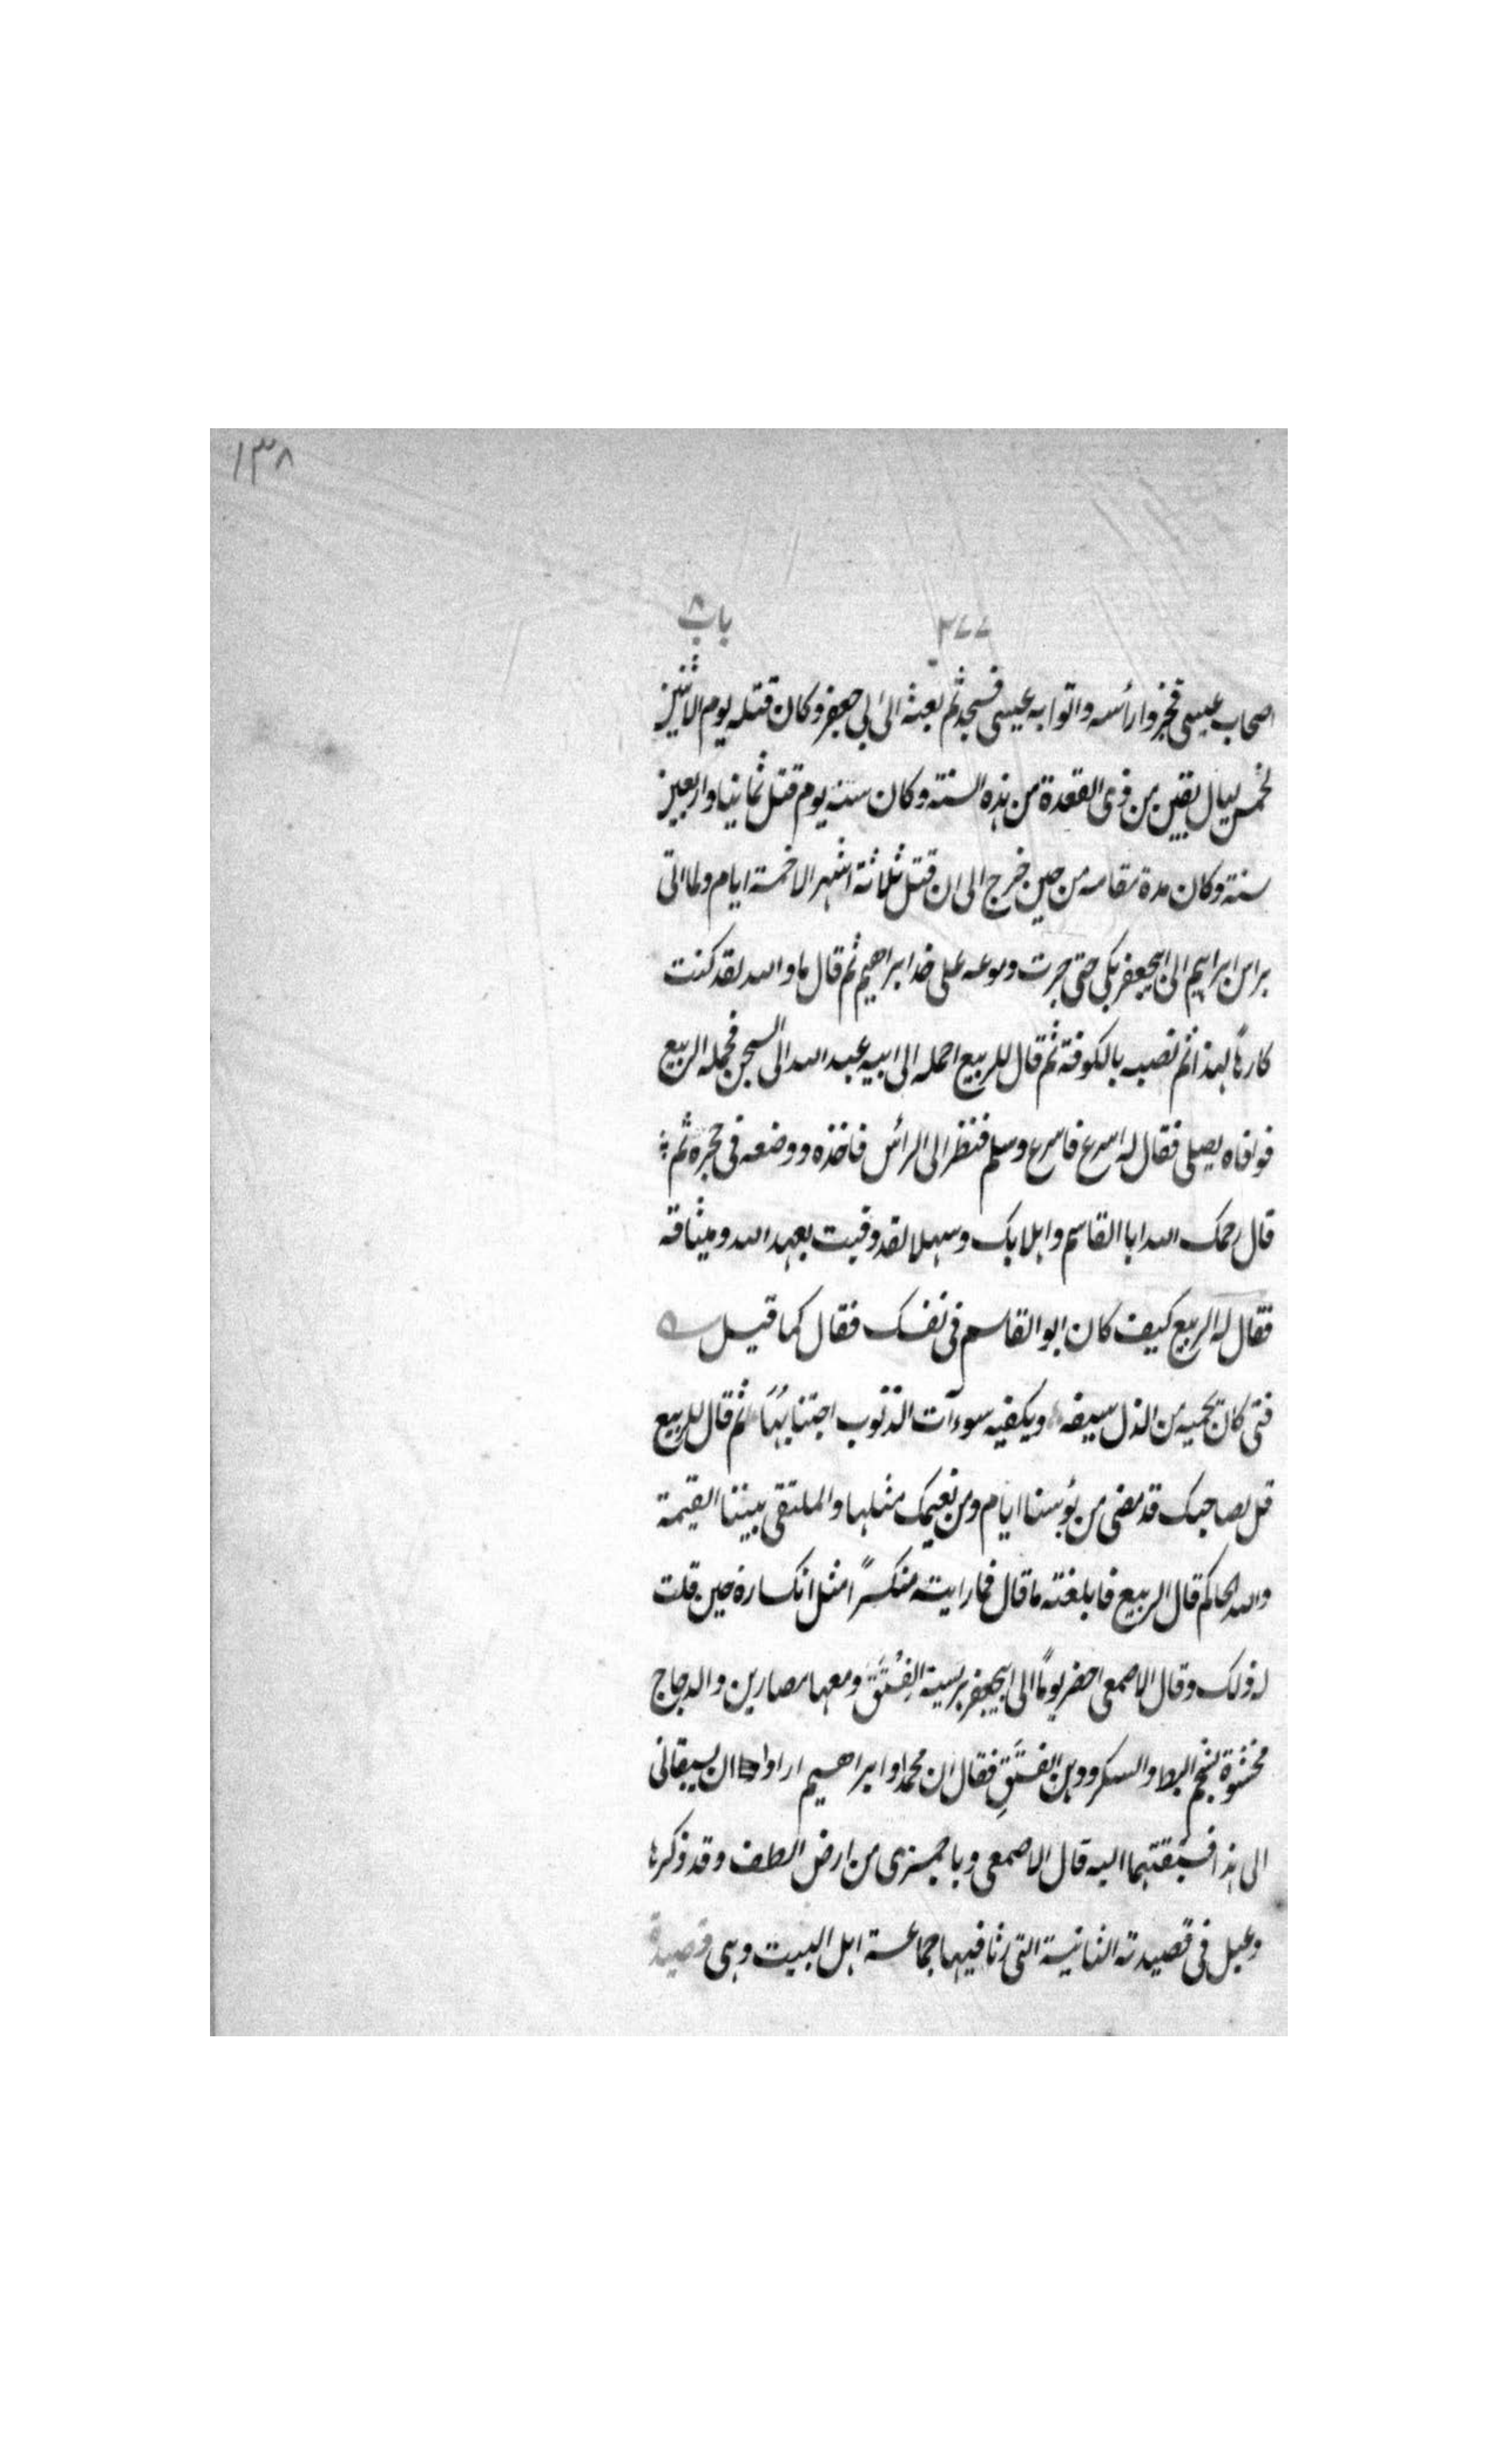 ١٣٨
٢٧٧ باب ٨
اصحاب عيسى فخروا رأسه واتوا به عيسى فسجد ثم بعثه الى ابى جعفر وكان قتله يوم الاثنين
لخمس ليال بقين من ذى القعدة من هذه السنة وكان سنه يوم قتل ثمانيا واربعين
سنة وكان مدة مقامه من حين خرج الى ان قتل ثلاثة اشهر الا خمسة ايام ولما اتى
براس ابراهيم الى ابيجعفر بكى حتى جرت دموعه على خد ابراهيم ثم قال اما والله لقد كنت
كارهًا لهذا ثم نصبه بالكوفة ثم قال للربيع احمله الى ابيه عبد الله الى السجن فحمله الربيع
فوافاه يصلى فقال له اسرع فاسرع وسلم فنظر الى الرأس فاخذه ووضعه فى حجره ثم
قال رحمك الله ابا القاسم واهلا بك وسهلا لقد وفيت بعهد الله وميثاقه
فقال له الربيع كيف كان ابو القاسم فى نفسك فقال كما قيل
فتى كان تحميه من الذل سيفه ويكفيه سوءات الذنوب اجتنابُهَا ثم قال للربيع
قل لصاحبك قد مضى من بؤسنا ايام ومن نعيمك مثلها والملتقى بيننا القيمة
والله الحاكم قال الربيع فابلغته ما قال فما رايته منكسرًا مثل انكساره حين قلت
له ذلك وقال الاصمعى احضر يومًا الى ابيجعفر هريسة الفُسْتَق ومعها مصارين والدجاج
محشوة بشحم البط والسكر ودهن الفستق فقال ان محمدا وابراهيم ارادا ان يسبقانى
الى هذا فسبقتهما اليه قال الاصمعى وباخمرى من ارض الطف وقد ذكرها
دعبل فى قصيدته التائية التى رثا فيها جماعة اهل البيت وهى قصيدة